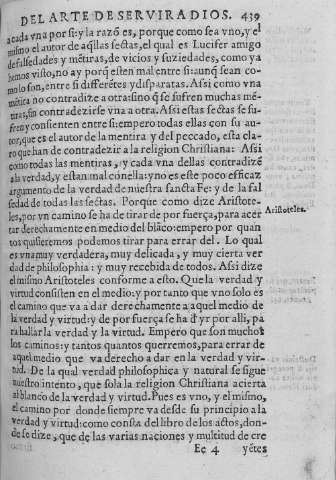 DEL ARTE DE SERVIR A DIOS. 439
a cada vna por si: y la razõ es, porque como sea vno, y el
mismo el autor de aq̃llas sectas, el qual es Lucifer amigo
de falsedades y mẽtiras, de vicios y suziedades, como ya
hemos visto, no ay porq̃ estẽn mal entre si: aunq̃ sean co-
mo lo son, entre si differẽtes y disparatas. Assi como vna
mẽtira no contradize a otra: sino q̃ se sufren muchas mẽ-
tiras, sin contradezirse vna a otra. Assi estas sectas se su-
fren y consienten entre si: empero todas ellas con su au-
tor, que es el autor de la mentira y del peccado, esta cla-
ro que han de contradezir a la religion Christiana: Assi
como todas las mentiras, y cada vna dellas contradizẽ
a la verdad, y estan mal con ella: y no es este poco efficaz
argumento de la verdad de nuestra sancta Fe: y de la fal
sedad de todas las sectas. Porque como dize Aristote-
les, por vn camino se ha de tirar de por fuerça, para acer
tar derechamente en medio del blãco: empero por quan
tos quisieremos podemos tirar para errar del. Lo qual
es vna muy verdadera, muy delicada, y muy cierta ver
dad de philosophia: y muy recebida de todos. Assi dize
el mismo Aristoteles conforme a esto. Que la verdad y
virtud consisten en el medio: y por tanto que vno solo es
el camino que va a dar derechamente a aquel medio de
la verdad y virtud: y de por fuerça se ha d̃ yr por alli, pa
ra hallar la verdad y la virtud. Empero que son muchos
los caminos: y tantos quantos querremos, para errar de
aquel medio que va derecho a dar en la verdad y vir-
tud. De la qual verdad philosophica y natural se sigue
nuestro intento, que sola la religion Christiana acierta
al blanco de la verdad y virtud. Pues es vno, y el mismo,
el camino por donde siempre va desde su principio a la
verdad y virtud: como consta del libro de los actos, don-
de se dize, que de las varias naciones y multitud de cre
Ee 4 yẽtes
Aristoteles.